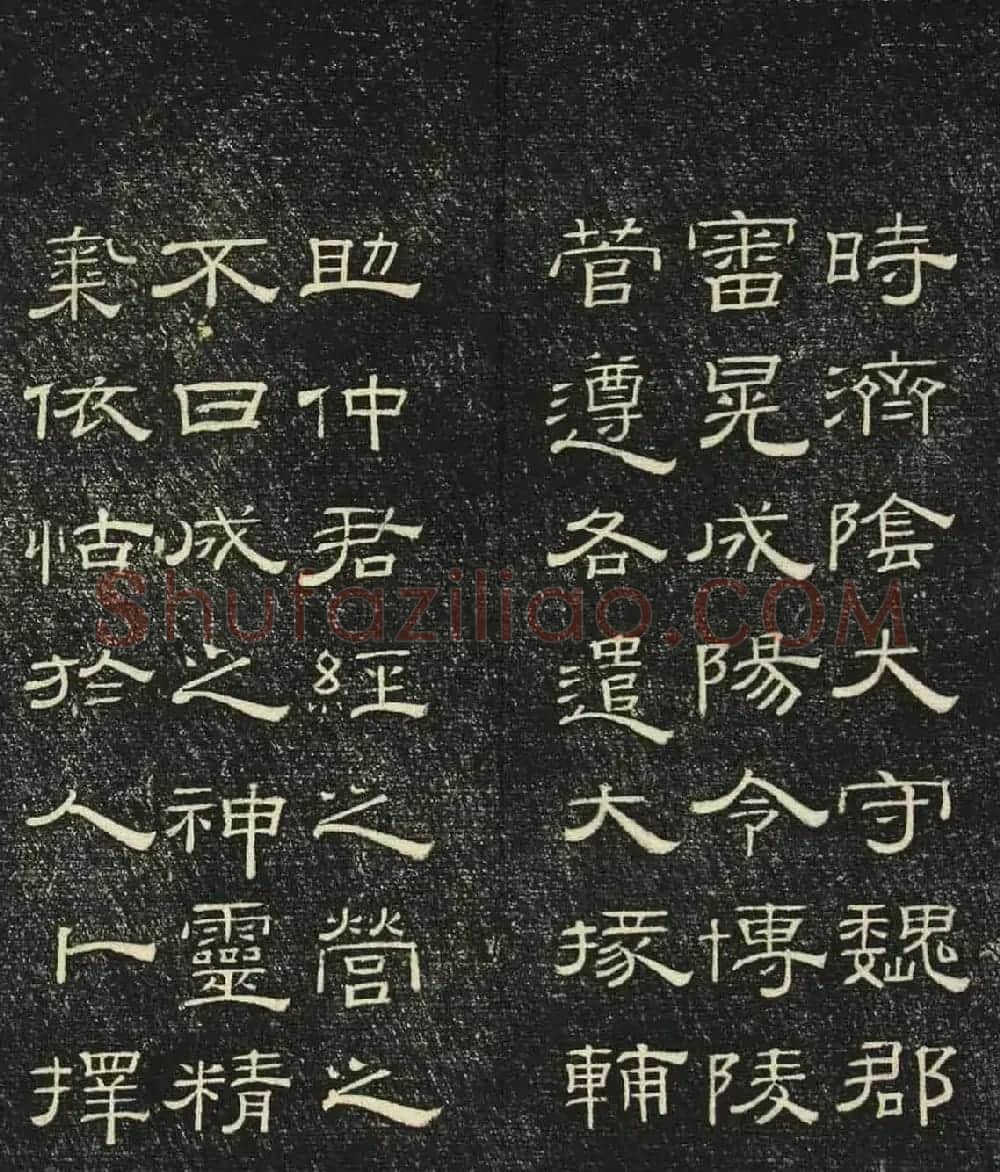 時濟陰大守魏郡
審晃成陽令博陵
菅遵各遣大掾輔
助仲君經之營之
不日成之神靈精
氣依怙於人卜擇
Shufaziliao.COM